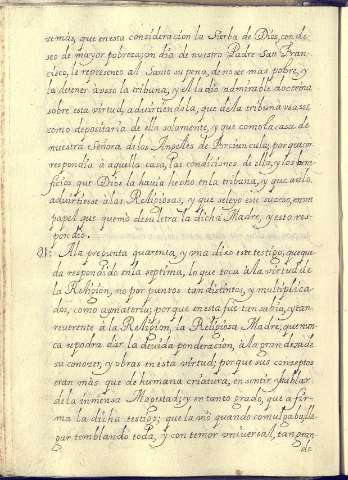 vemás, que en esta consideracion la Sierba de Dios, con de
seo de mayor pobreza, un dia de nuestro Padre San Fran
cisco, le represento al Santo su pena, de no ser mas pobre, y
la de tener a uso la tribuna, y él la dio admirable doctrina
sobre esta virtud, advirtiendola, que de la tribuna usasse
como depositaria de ella solamente, y que como la casa de
nuestra Señora de los Angeles de Porciuncula, porque cor
respondia à aquella casa, las condiciones de ella, y los bene
ficios que Dios la havia hecho en la tribuna, y que assi lo
advirtiesse à las Religiosas, y que se leyò este sucesso, en un
papel que quemò de su letra la dicha Madre, y esto res
pondio.
A la pregunta quarenta, y una dixo este testigo, que que
da respondido en la septima, lo que toca à la virtud de
la Religion, no por puntos tan distintos, y multiplica
dos, como aqui notaria; porque en esta fue tan sabia, y tan
reverente à la Religion, la Religiosa Madre, que nun
ca se podra dar la devida ponderacion, à la grandeza de
su conozer, y obras en esta virtud; porque sus conseptos
eran más que de humana criatura, en sentir, y hablar
de la inmensa Magestad; y en tanto grado, que afir
ma la dicha testigo; que la viò quando comulgaba lle
gar temblando toda, y con temor universal, tan gran
de